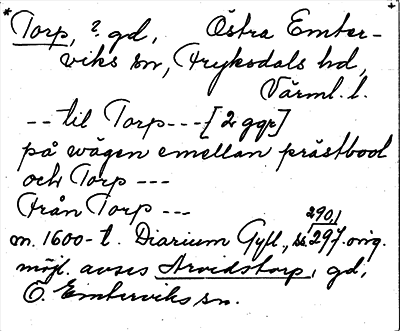 * Torp, ? gd, Östra Emter- +
viks sn, Fryksdals hd,
Värml. l.
-- til Torp --- [2 ggr]
på wägen emellan prästbool
och Torp ---
Från Torp ---
290,1
m. 1600-t. Diarium Gyll., ss. 297. orig.
möjl. avses Arvidstorp, gd,
Ö. Emterviks sn.